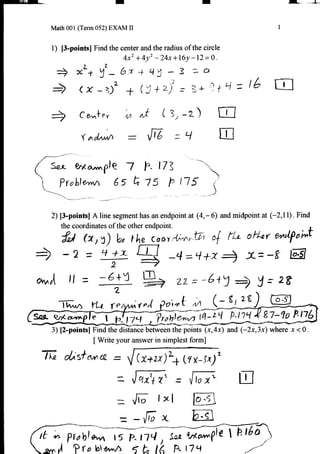 Math 001 (Term 052) EXAM II
1
1) [3-points] Find the center and the radius of the circle
4x² + 4y² − 24x + 16y − 12 = 0.
⇒ x² + y² − 6x + 4y − 3 = 0
⇒ (x − 3)² + (y + 2)² = 3 + 9 + 4 = 16 [1]
⇒ Center is at (3, −2) [1]
radius = √16 = 4 [1]
See example 7 P. 173
Problems 65 & 75 P 175
2) [3-points] A line segment has an endpoint at (4,−6) and midpoint at (−2,11). Find
the coordinates of the other endpoint.
Let (x, y) be the coordinates of the other endpoint
⇒ −2 = (4 + x)/2 [1] ⇒ −4 = 4 + x ⇒ x = −8 [0.5]
and 11 = (−6 + y)/2 [1] ⇒ 22 = −6 + y ⇒ y = 28
Thus the required point is (−8, 28) [0.5]
See example 1 P. 174, Problems 19-24 P.174 & 87-90 P.176
3) [2-points] Find the distance between the points (x,4x) and (−2x,3x) where x < 0.
[ Write your answer in simplest form]
The distance = √(x+2x)² + (4x−3x)²
= √9x² + x² = √10x² [1]
= √10 |x| [0.5]
= −√10 x [0.5]
it is problem 15 P. 174, See example 1 P 160
and Problems 5 & 16 P. 174